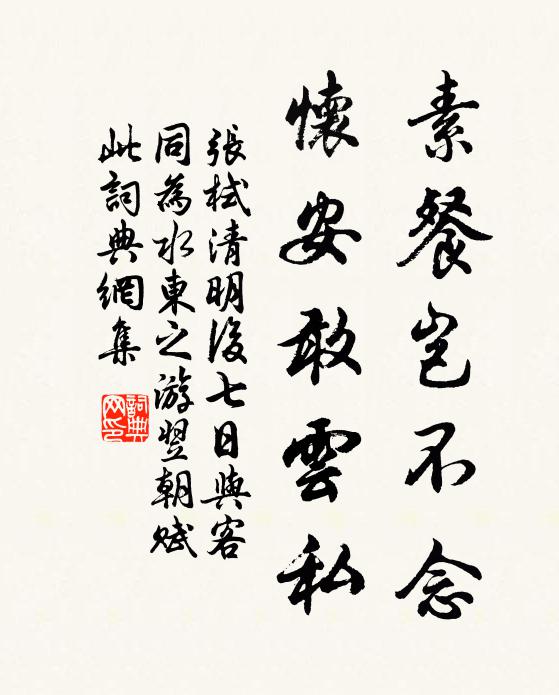 素餐岂不念
懷安敢雲私
張栻清明後七日與客
同為水東之游翌朝賦
此詞典網集
詞典网印